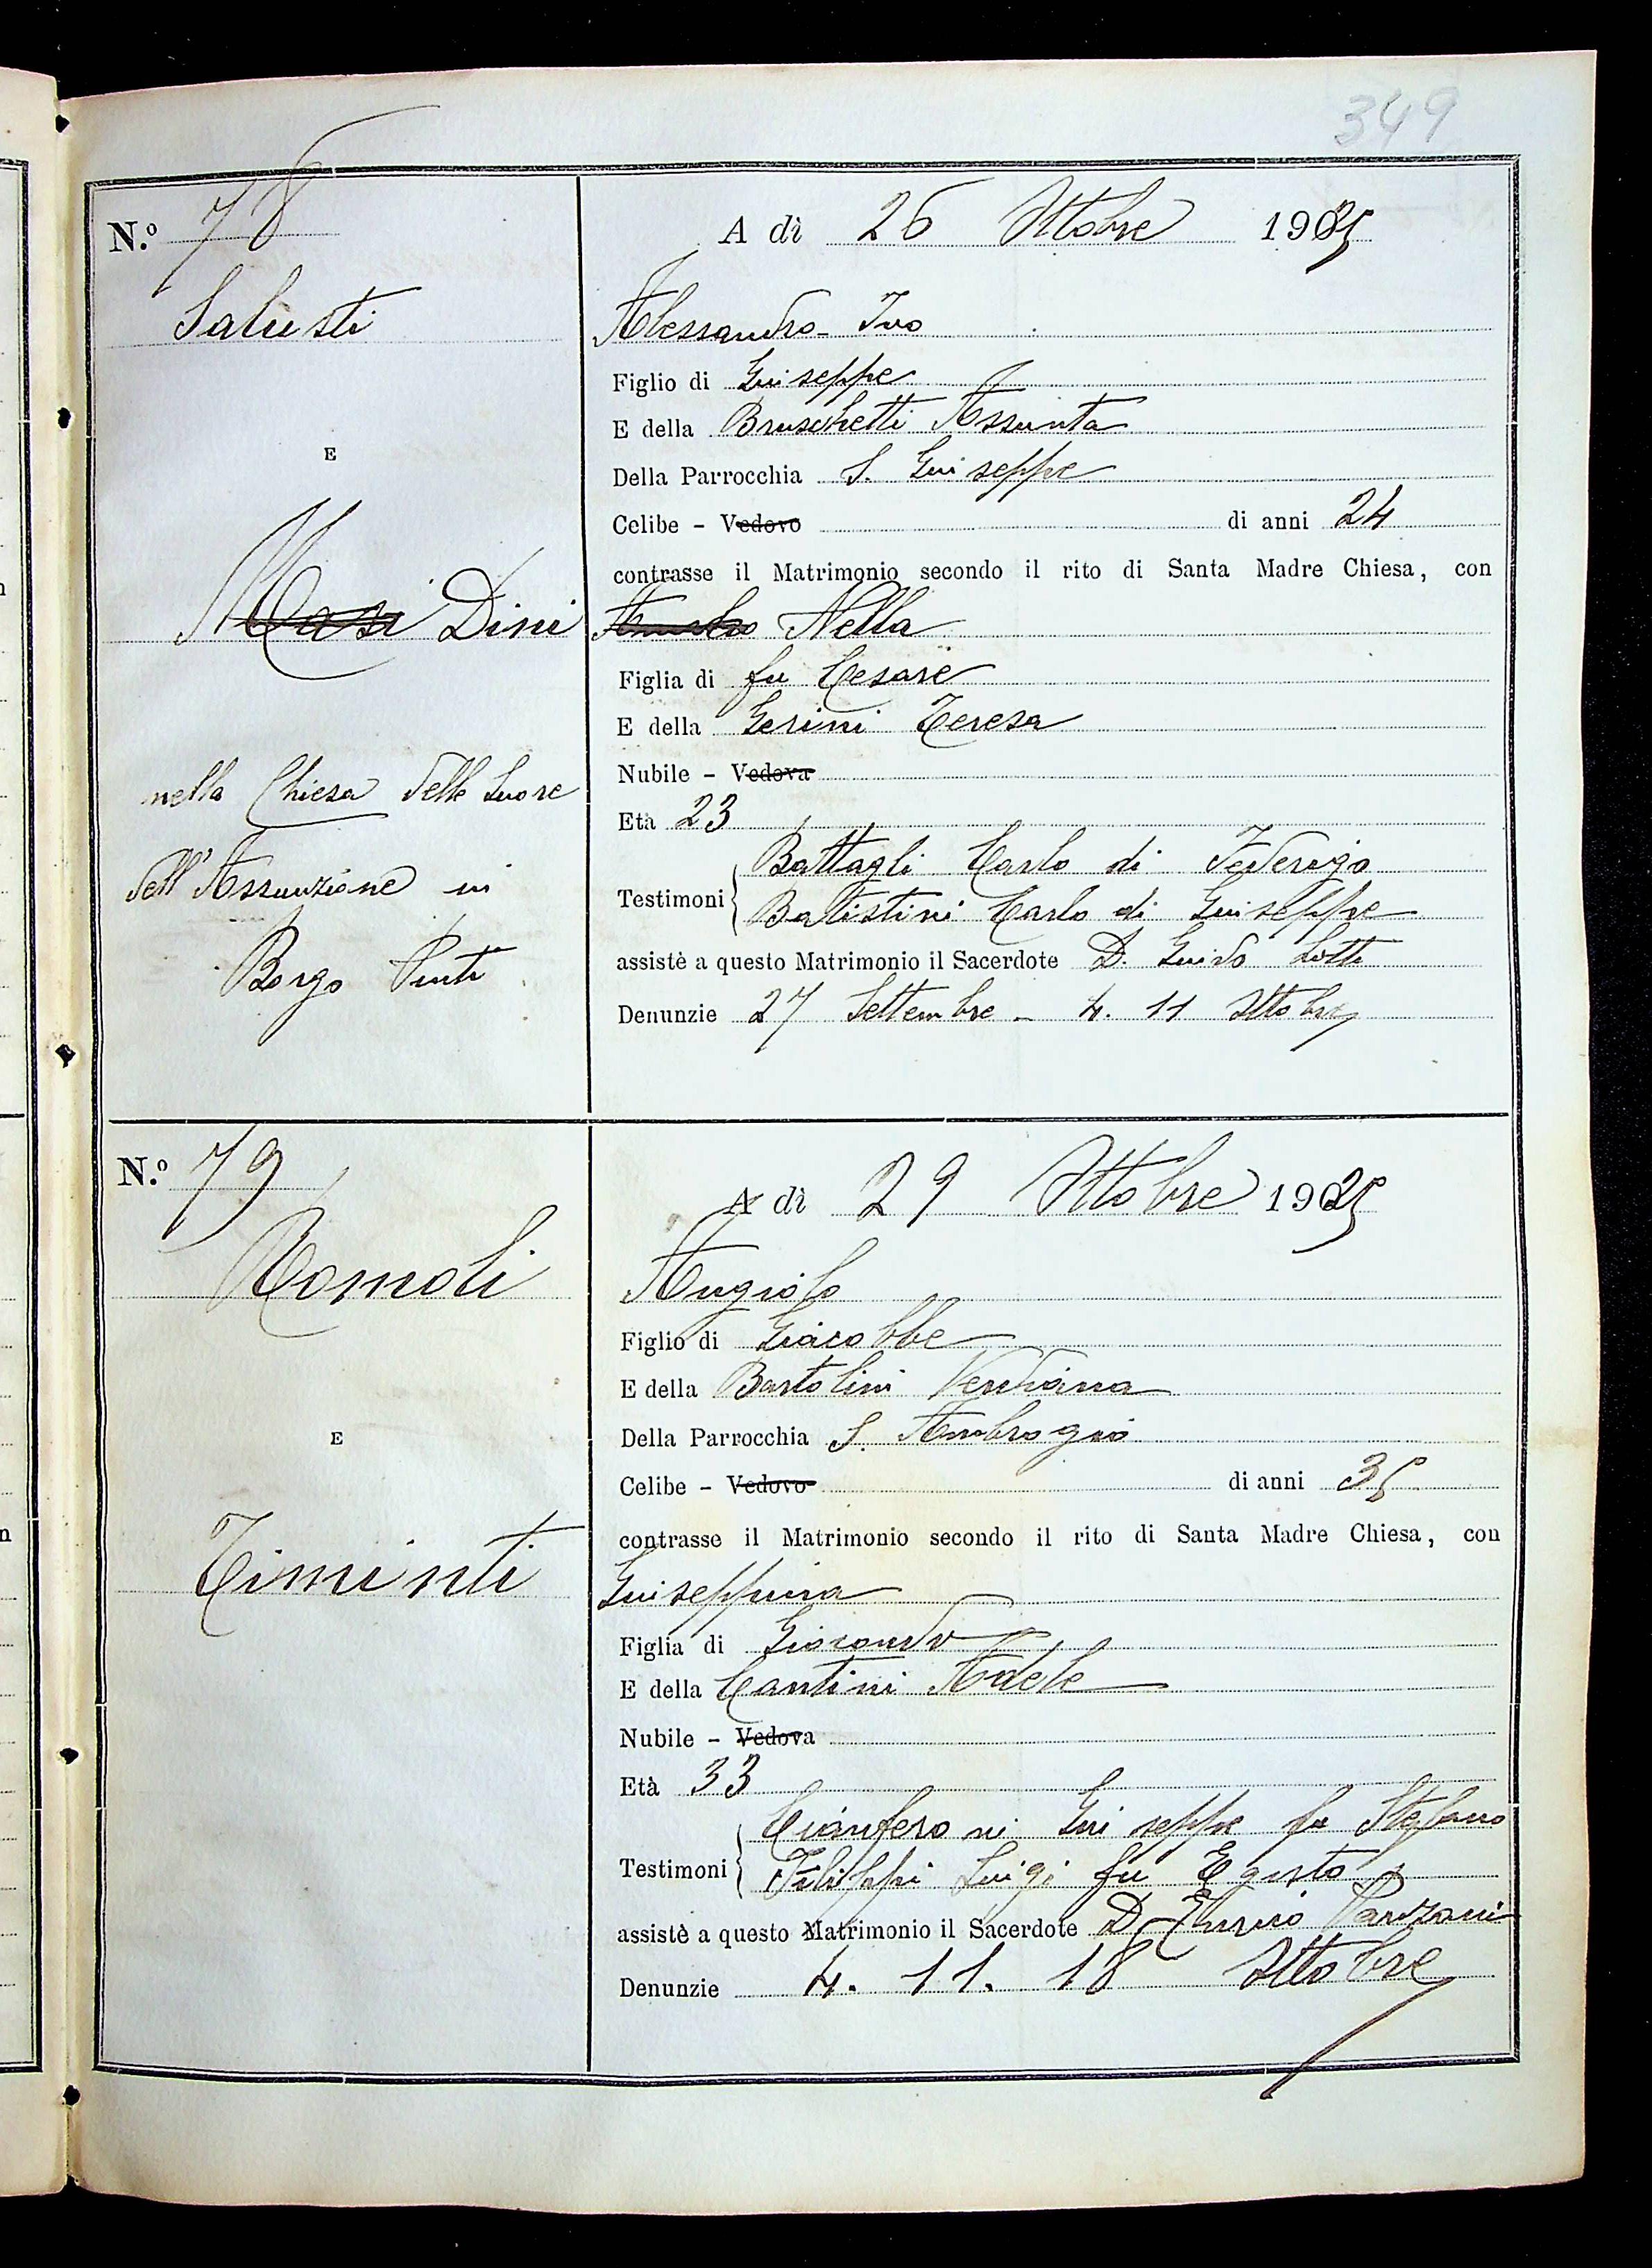 349
N.º 78
A dì 26 Ottobre 1925
Salusti
Alessandro Ivo
Figlio di Giuseppe
E della Bruschetti Assunta
Della Parrocchia S. Giuseppe
E
Celibe - Vedovo di anni 24
contrasse il Matrimonio secondo il rito di Santa Madre Chiesa, con
Masi Dini
Nella
Figlia di fu Cesare
E della Gerini Teresa
Nubile - Vedova
Età 23
nella Chiesa delle Suore
dell'Assunzione in
Borgo Pinti
Testimoni Battagli Carlo di Federigo
Battistini Carlo di Giuseppe
assistè a questo Matrimonio il Sacerdote D. Guido Lotti
Denunzie 27 Settembre - 4. 11 Ottobre
N.º 79
A dì 29 Ottobre 1925
Romoli
Angiolo
Figlio di Giacobbe
E della Bartolini Verdiana
Della Parrocchia S. Ambrogio
E
Celibe - Vedovo di anni 35
contrasse il Matrimonio secondo il rito di Santa Madre Chiesa, con
Timinti
Giuseppina
Figlia di Giocondo
E della Cantini Adele
Nubile - Vedova
Età 33
Testimoni Cianferoni Giuseppe fu Stefano
Filippi Luigi fu Egisto
assistè a questo Matrimonio il Sacerdote D.
Denunzie 4. 11. 18 Ottobre